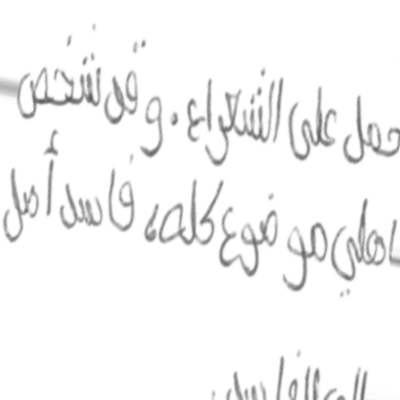 حمل على الشعراء. وقد شخص
اهلي موضوع كله، فاسد أصل